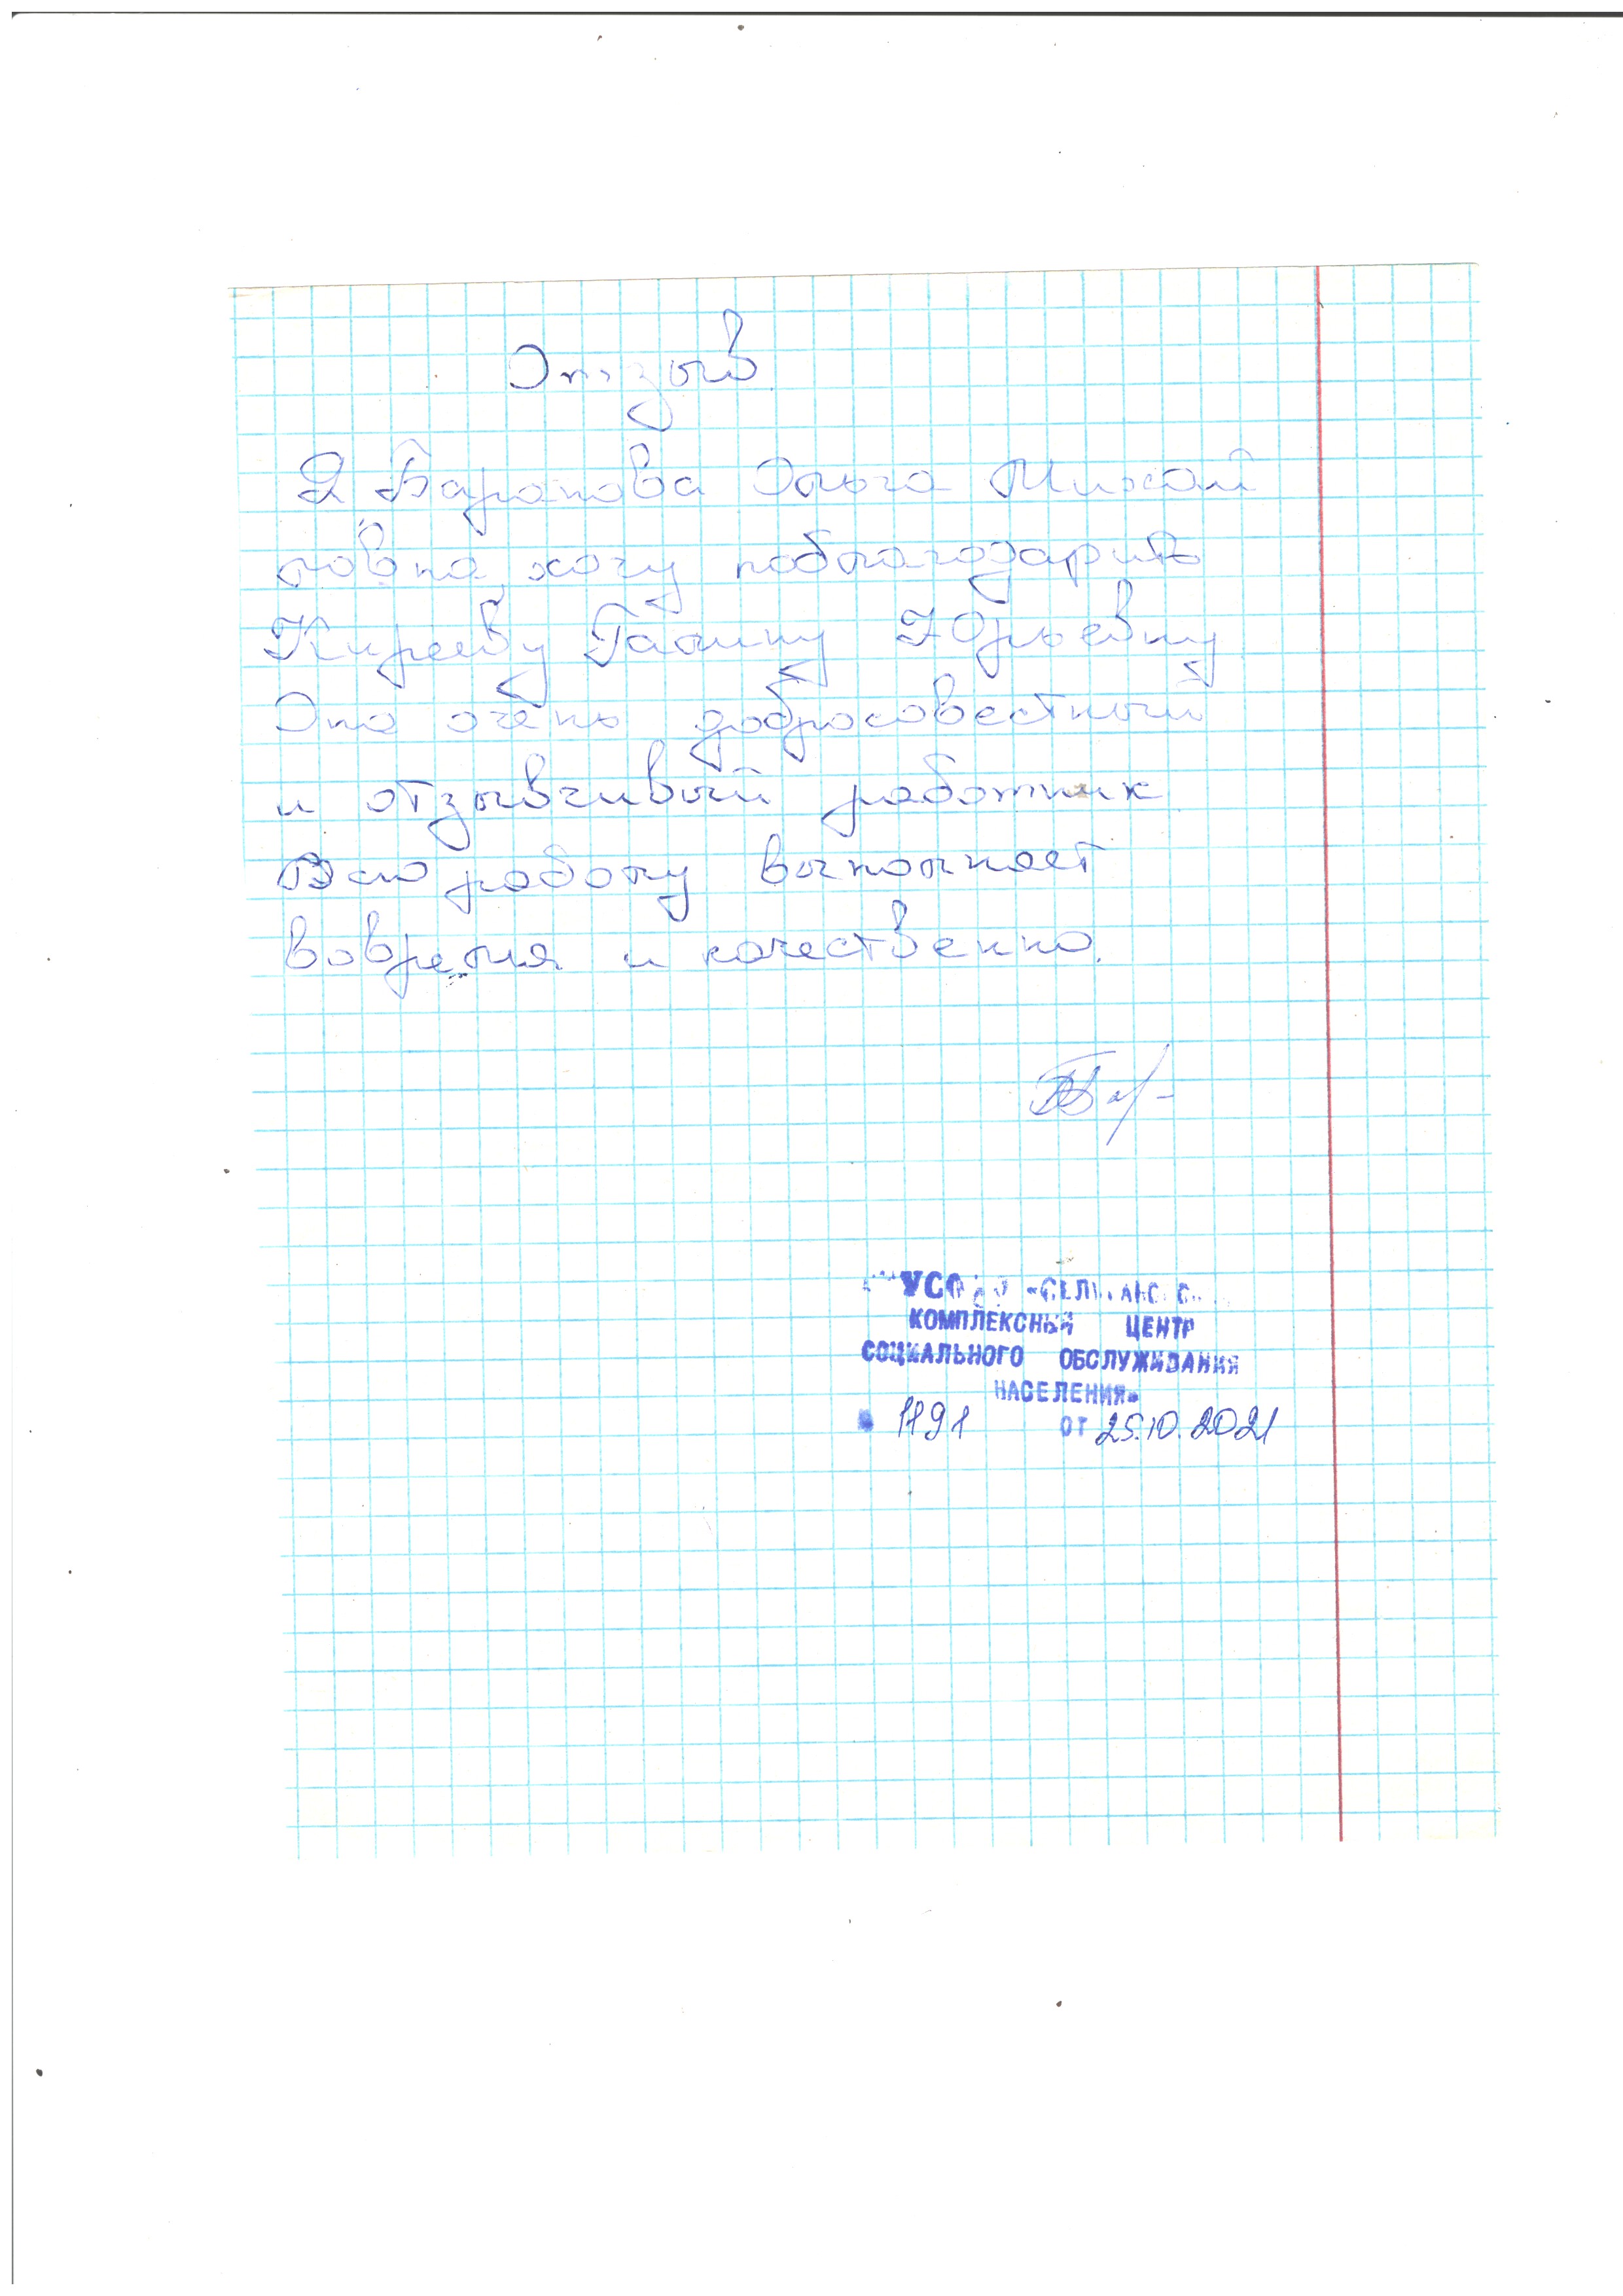 Отзыв.
Я Баранова Ольга Михай
ловна, хочу поблагодарить
Кирееву Галину Юрьевну
Она очень добросовестный
и отзывчивый работник.
Всю работу выполняет
вовремя и качественно.
КОМПЛЕКСНЫЙ ЦЕНТР
СОЦИАЛЬНОГО ОБСЛУЖИВАНИЯ
НАСЕЛЕНИЯ»
1191 от 25.10.2021